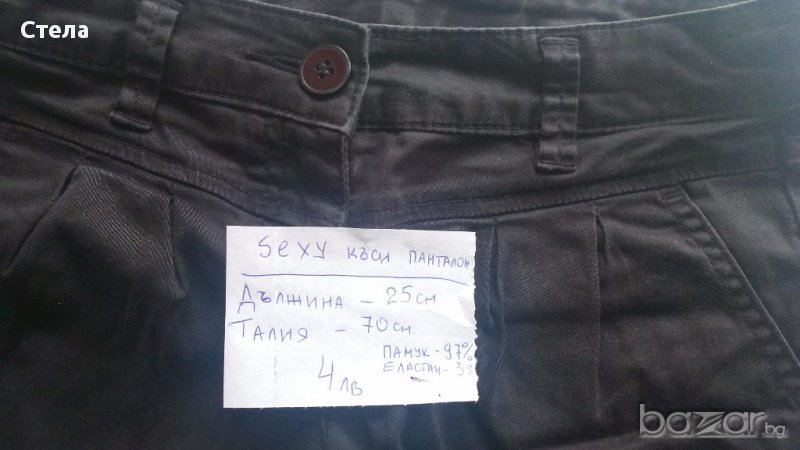 Стела
Sexy къси панталон
Дължина - 25см
Талия - 70см.
Памук - 97%
Еластан - 3%
4лв
bazar.bg